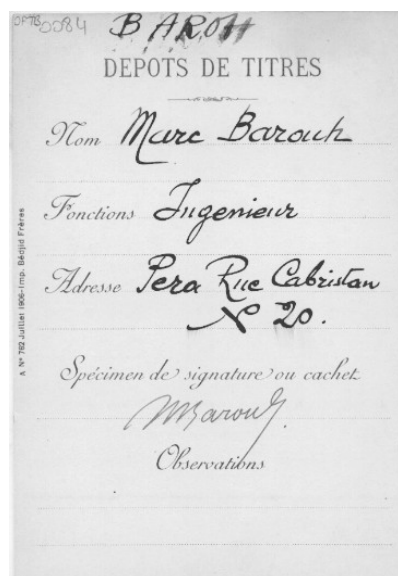 OFTB0084
BAROH
DEPOTS DE TITRES
Nom Marc Barouh
Fonctions Ingenieur
Adresse Pera Rue Cabristan
N° 20.
Spécimen de signature ou cachet
MBarouh
Observations
A Nº 762 Juillet 1906-Imp. Bédjid Frères